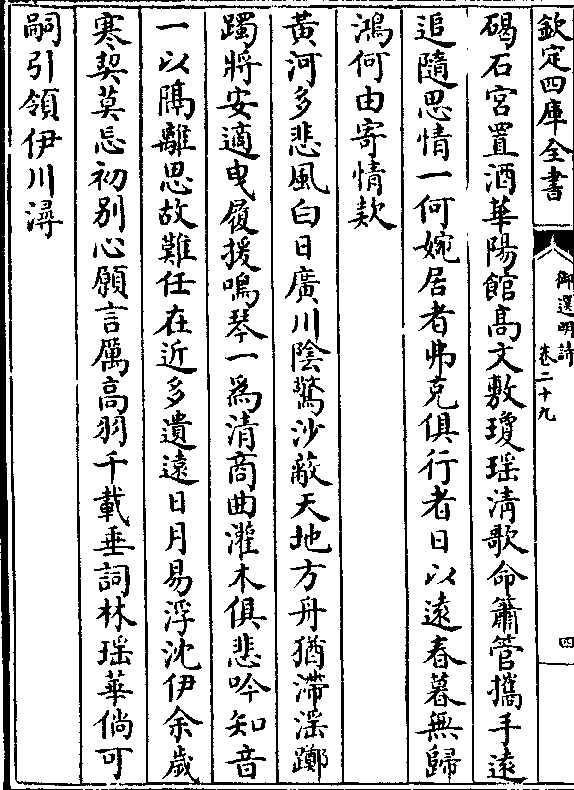 欽定四庫全書
御選明詩
卷二十九
四
碣石宮置酒華陽館高文敷瓊瑶清歌命簫管攜手遠
追隨思情一何婉居者弗克俱行者日以遠春暮無歸
鴻何由寄情款
黄河多悲風白日廣川陰驚沙蔽天地方舟猶滯淫躑
躅將安適曳履援鳴琴一為清商曲灌木俱悲吟知音
一以隔離思故難任在近多遺遠日月易浮沈伊余歲
寒契莫忘初别心願言厲高羽千載垂詞林瑶華倘可
嗣引領伊川潯